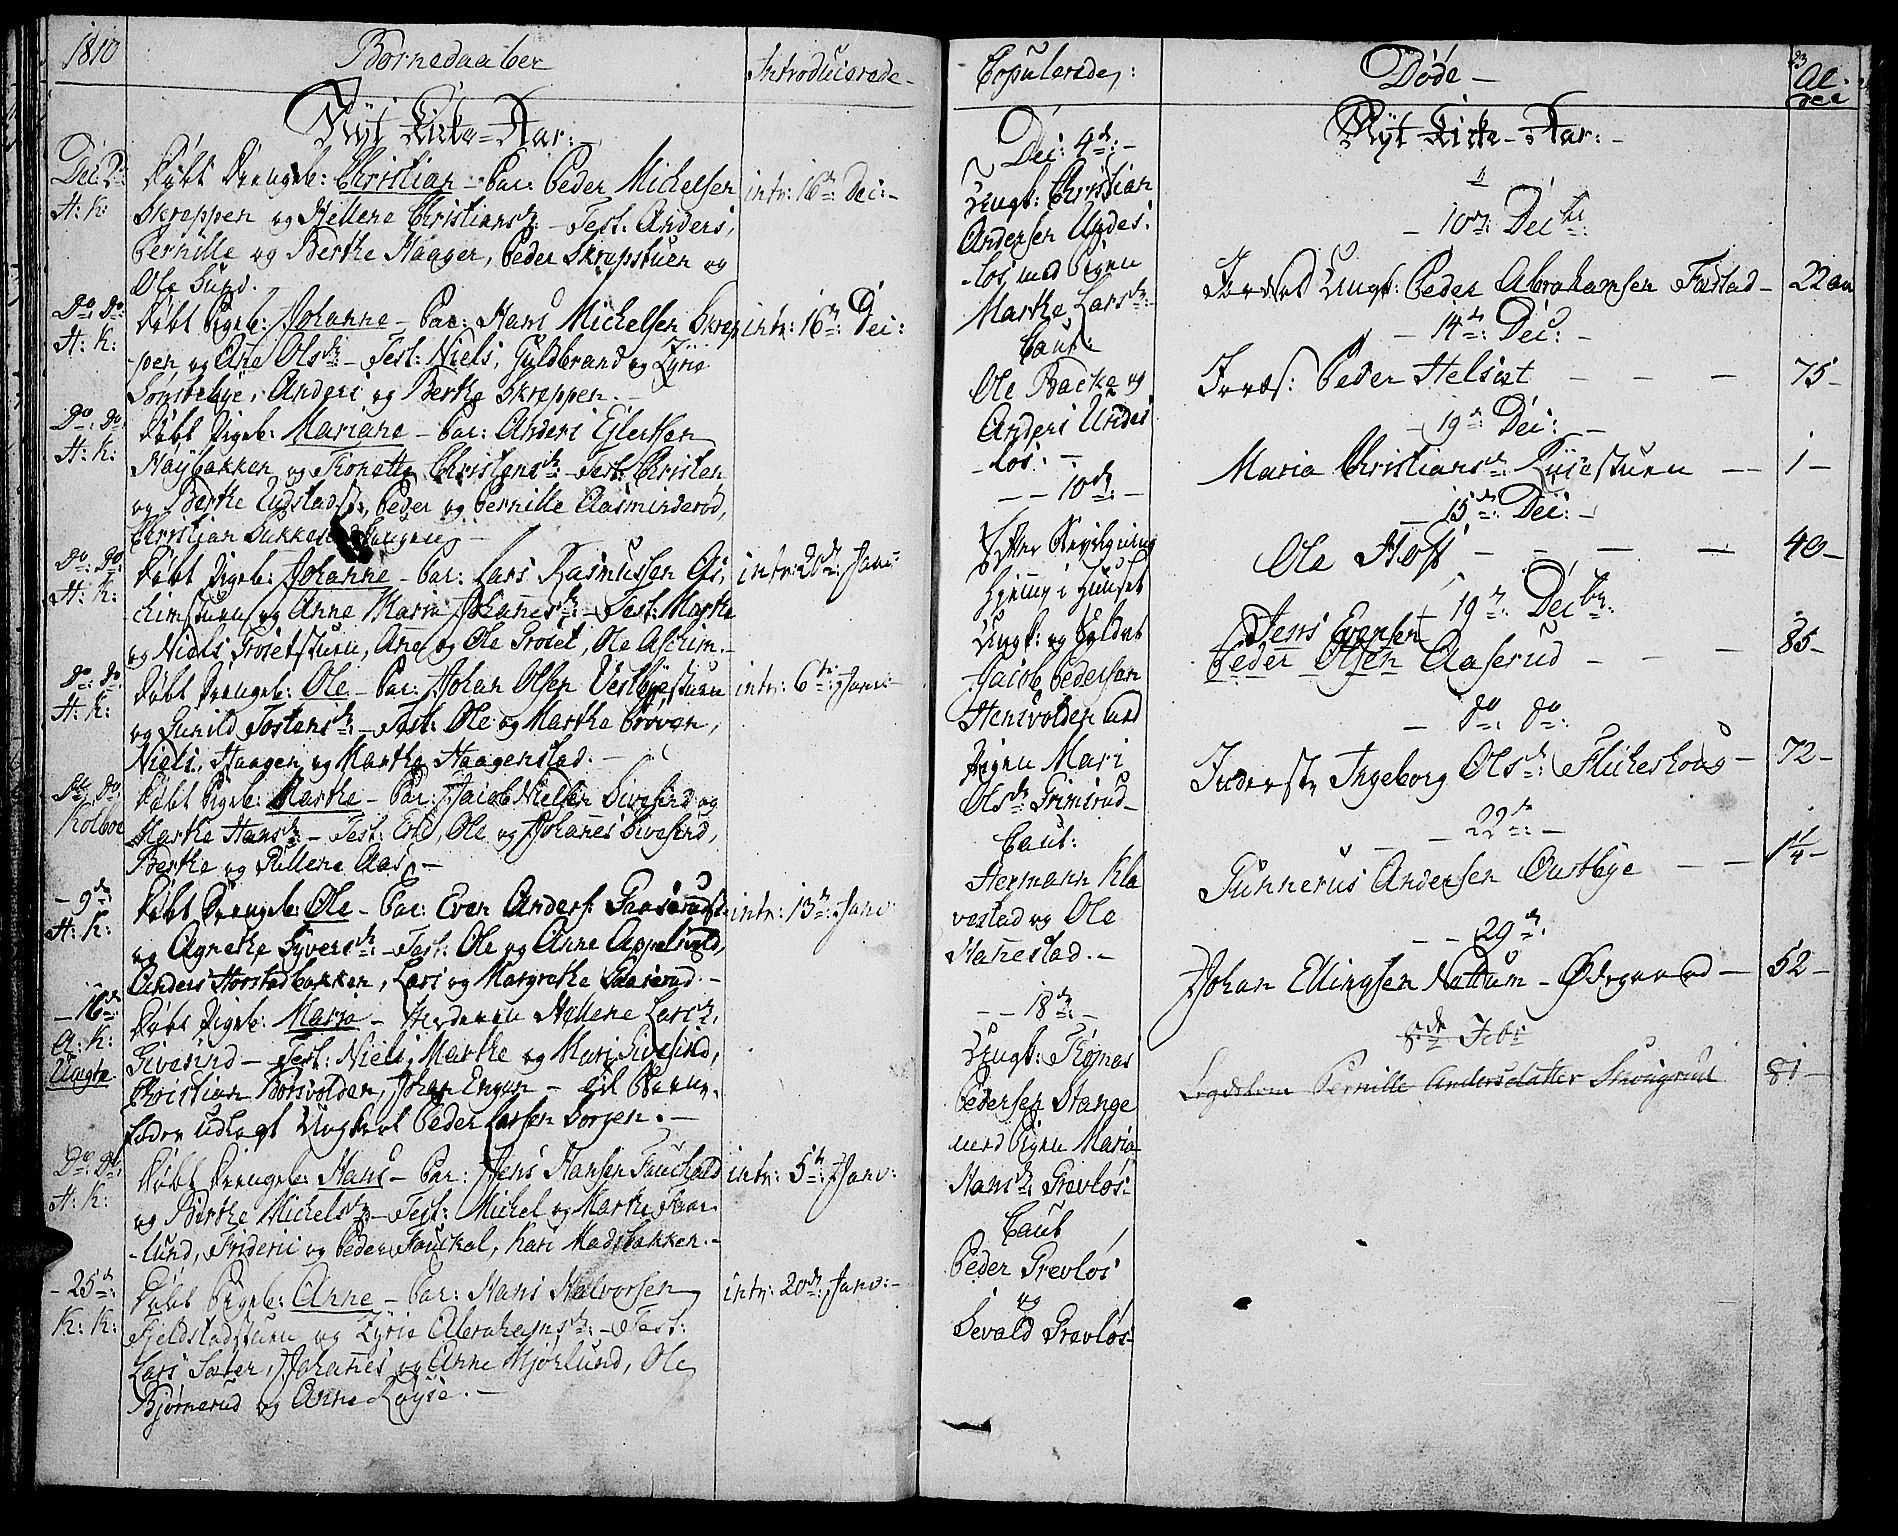 1810
Børnedaaber
Introducerede
Nyt Kirke-Aar:
Dec: 2
H: K:
Døbt Drengeb: Christian - Par: Peder Michelsen
Skreppen og Hellene Christiansd: - Test: Anders,
Pernille og Berthe Haager, Peder Skrepstuen og
Ole Sund.
intr: 16de Dec:
do: do
H: K:
Døbt Pigeb: Johanne - Par: Hans Michelsen Skrep
pen og Ane Olsd: - Test: Niels, Guldbrand og Zyrie
Sønstebye, Anders og Berthe Skreppen.
intr: 16de Dec:
do: do
H: K:
Døbt Pigeb: Mariane - Par: Anders Ejlertsen
Nøybakken og Thonette Christensd: - Test: Christen
og Berthe Rudstad, Peder og Pernille Aasminderød,
Christian
do: do
H: K:
Døbt Pigeb: Johanne - Par: Lars Rasmussen As,
chimstuen og Anne Maria Johannesd: - Test: Marthe
og Niels Trosetstuen, Ane og Ole Troset, Ole Aschim.
intr: 20de Janv:
do: do
H: K:
Døbt Drengeb: Ole - Par: Johan Olsen Vestbyestuen
og Gunild Tostensd: - Test: Ole og Marthe Prøven,
Niels, Haagen og Marthe Haagenstad.
intr: 6te Janv:
do: do:
Kolboe
Døbt Pigeb: Marthe - Par: Jacob Nielsen Sivesind og
Marthe Hansd: - Test: Erik, Ole og Johannes Sivesind,
Berthe og Pallene Aas
- 9de
H: K:
Døbt Drengeb: Ole - Par: Even Anders: Gaaserudst
og Agnethe Syversd: - Test: Ole og Anne Appelsvold,
Anders Horstadbakken, Lars og Margrethe Gaaserud.
intr: 13de Janv
- 16de
A: K:
Uægte
Døbt Pigeb: Maria - Moderen Hellene Larsd:
Sivesind - Test: Niels, Marthe og Mari Sivesind,
Christian Borsvolden, Johan Engen - til Barne,
fader udlagt Ungkarl Peder Larsen Sorgen.
do: do:
H: K:
Døbt Drengeb: Hans - Par: Jens Hansen Fauchald
og Berthe Michelsd: - Test: Michel og Marthe Faar
-lund, Frideric og Peder Fauckal, Kari Madsbakken.
intr: 5te Janv:
- 25de
K: K:
Døbt Pigeb: Anne - Par: Hans Halvorsen
Fjeldstadstuen og Zyrie Abrahamsd: - Test:
Lars Sæter, Johannes og Anne Mjørlund, Ole
Bjørnerud og Anne Røyse.
intr: 20de Janv:
Copulerede:
Dec: 4de:
Ungk: Christian
Andersen Undes:
-los med Pigen
Marthe Larsd:
Caut:
Ole Backe og
Anders Undes
-los.
- - 10de:
Efter Bevilgning
hjemme i Huuset
Ungk: og
Jacob Pedersen
Hensvolden med
Pigen Mari
Olsd: Grimsrud
Caut:
Hermann Kla
vestad og Ole
Hanestad.
- - 18de:
Ungk: Thomas
Pedersen Stange
med Pigen Maria
Hansd: Grevløs
Caut
Peder Grevløs
og
Sevald Grevløs
Døde
Nyt Kirke-Aar:
23
Al
der
10de: Decbr:
Jordet Ungk: Peder Abrahamsen Fudstad - 22 aar
- 14de: Dec:
Jordf: Peder Helset - - - 75
- 19de: Dec:
Maria Christiansd: Lysestuen - 1
- 15de: Dec:
Ole Hoff - - - - 40
- 19de: Decbr:
Jens Evensen
Peder Olsen Aaserud - - - 85
- do: do:
Inderste Ingeborg Olsd: - 72
- 22de: -
Gunnerus Andersen Oustbye - - 1/4
- - 29de:
Johan Ellingsen Nøttum-Ødegaard - 52
8de Febr
Legdslem Pernille Andersdatter 81